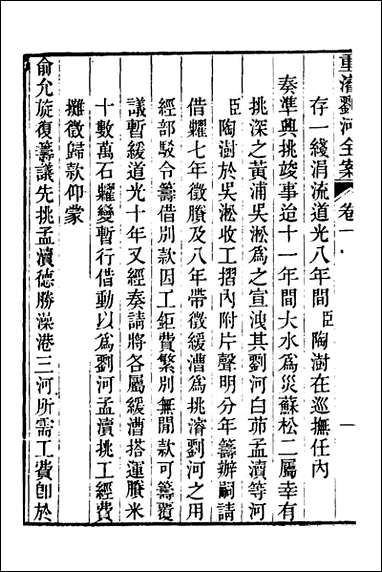 重濬劉河全案
卷一
一
存一綫涓流道光八年間臣陶澍在巡撫任內
奏準興挑竣事迨十一年間大水爲災蘇松二屬幸有
挑深之黃浦吳淞爲之宣洩其劉河白茆孟瀆等河
臣陶澍於吳淞收工摺內附片聲明分年籌辦嗣請
借糶七年徵賸及八年帶徵緩漕爲挑濬劉河之用
經部駁令籌借別款因工鉅費繁別無閒款可籌覆
議暫緩道光十年又經奏請將各屬緩漕搭運賸米
十數萬石糶變暫行借動以爲劉河孟瀆挑工經費
攤徵歸款仰蒙
俞允旋復籌議先挑孟瀆德勝澡港三河所需工費卽於